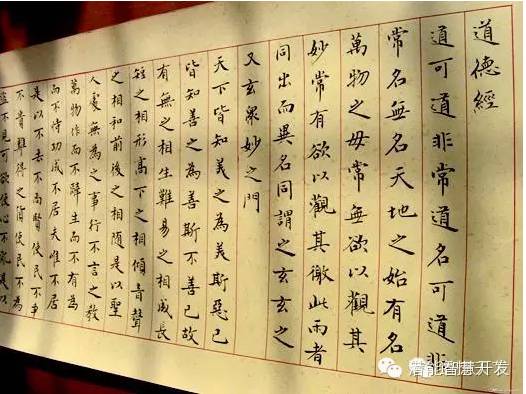 道德經
道可道非常道名可道非
常名無名天地之始有名
萬物之母常無欲以觀其
妙常有欲以觀其徼此兩者
同出而異名同謂之玄玄之
又玄眾妙之門
天下皆知美之為美斯惡已
皆知善之為善斯不善已故
有無之相生難易之相成長
短之相形高下之相傾音聲
之相和前後之相隨是以聖
人處無為之事行不言之教
萬物作而不辭生而不有為
而不恃功成不居夫唯不居
是以不去不尚賢使民不爭
不貴難得之貨使民不為
盜不見可欲使心不亂是以
潜能智慧开发